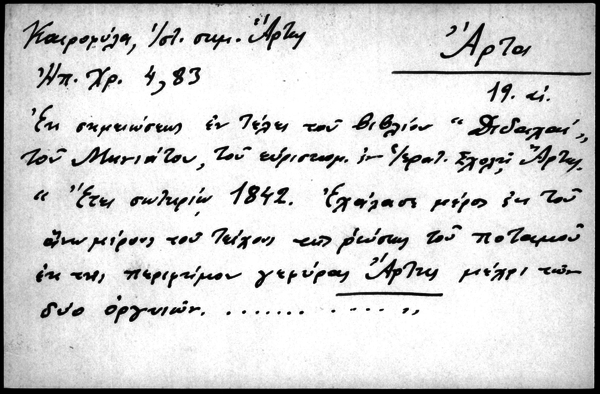 Καιρομύλα, Ἱστ. σημ. Ἄρτης
Ἄρτα
Ἠπ. Χρ. 4, 83
19. αἰ.
Ἐκ σημειώσεως ἐν τέλει τοῦ βιβλίου "Διδαχαί,,
τοῦ Μηνιάτου, τοῦ εὑρισκομ. ἐν Ἱερατ. Σχολῇ Ἄρτης.
" Ἔτει σωτηρίῳ 1842. Ἐχάλασε μέρος ἐκ τοῦ
ἄνω μέρους τοῦ τείχους τῆς ῥεύσης τοῦ ποταμοῦ
ἐκ τῆς περιφήμου γεφύρας Ἄρτης μέχρι τῶν
δύο ὀργυιῶν. .............,,